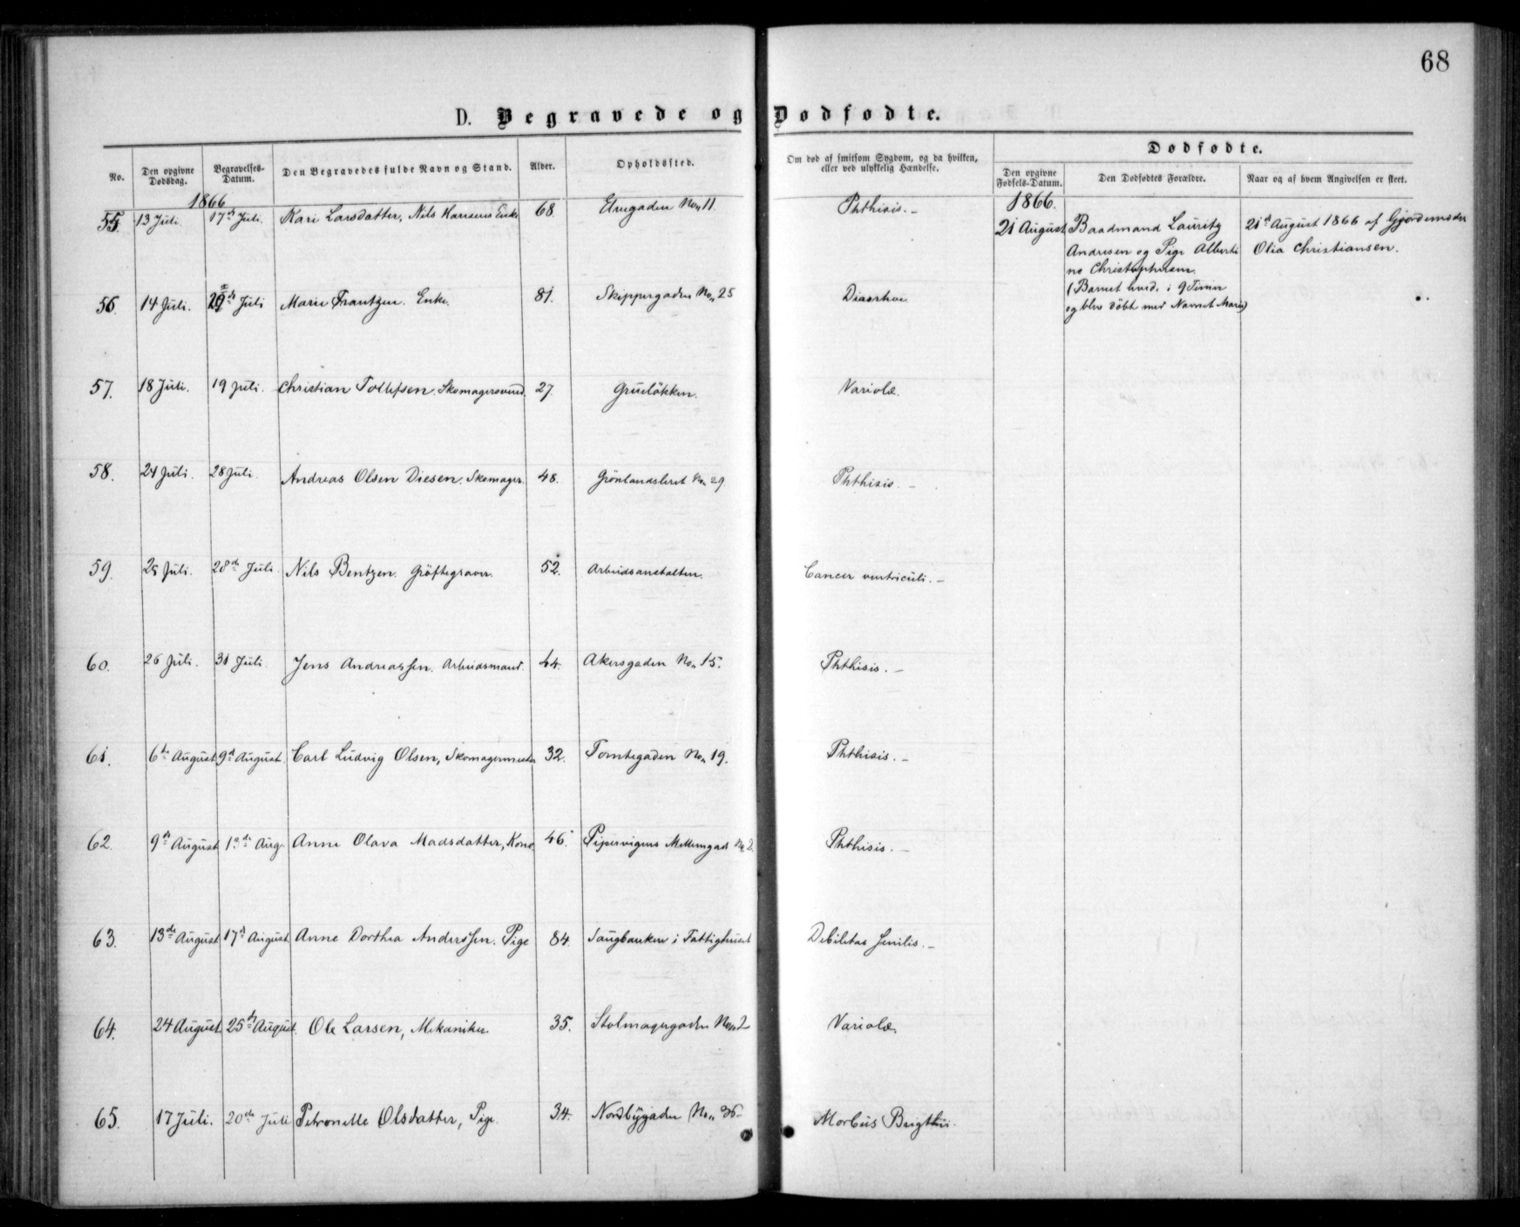 68
D. Begravede og Dødfødte.
No. Den opgivne Dødsdag. Begravelses-Datum. Den Begravedes fulde Navn og Stand. Alder. Opholdssted. Om død af smitsom Sygdom, og da hvilken, eller ved ulykkelig Hændelse.
Dødfødte.
Den opgivne Fødsels-Datum. Den Dødfødtes Forældre. Naar og af hvem Angivelsen er skeet.
1866
55. 13 Juli. 17de Juli. Kari Larsdatter, Nils Hansens Enke 68. Elvegaden No. 11 Phthisis. -
56. 14 Juli. Juli Marie Frantzen. Enke. 81. Skippergaden No. 25 Diaorhoe
57. 18 Juli. 19 Juli. Christian Tollefsen. Skomagersvend. 27. Grüeløkken. Variolæ.
58. 24 Juli. 28 Juli. Andreas Olsen Diesen. Skomager. 48. Grønlandsleret No. 29 Phthisis. -
59. 25 Juli. 28de Juli. Nils Bentzen. Grøftegraver. 52. Arbeidsanstalten. Cancer ventriculi. -
60. 26 Juli. 31 Juli. Jens Andreassen. Arbeidsmand. 44. Akersgaden No. 15. Phthisis. -
61. 6te August 9de August. Carl Ludvig Olsen, Skomagermester 32. Tomtegaden No. 19. Phthisis. -
62. 9de August Aug. Anne Olava Madsdatter, Kone 46. Pipervigens Mellemgade No. 2. Phthisis. -
63. 13de August 17de August Anne Dorthea Anderssen. Pige 84. Saugbanken i Fattighuset Debilitas Senilis. -
64. 24 August 25de August. Ole Larsen, Mekaniker 35. Stolmagergaden No. 2 Variolæ.
65. 17 Juli. 20de Juli Petronelle Olsdatter, Pige. 34. Nordbygaden No. 36 Morbus Brigthii.
1866.
21 August Baadmand Lauritz
Andresen og Pige Alberti
ne Christophersen.
(Barnet leved. i 9 Timer
og blev døbt med Navnet Marie)
21de August 1866 af Gjordemoder
Olia Christiansen.